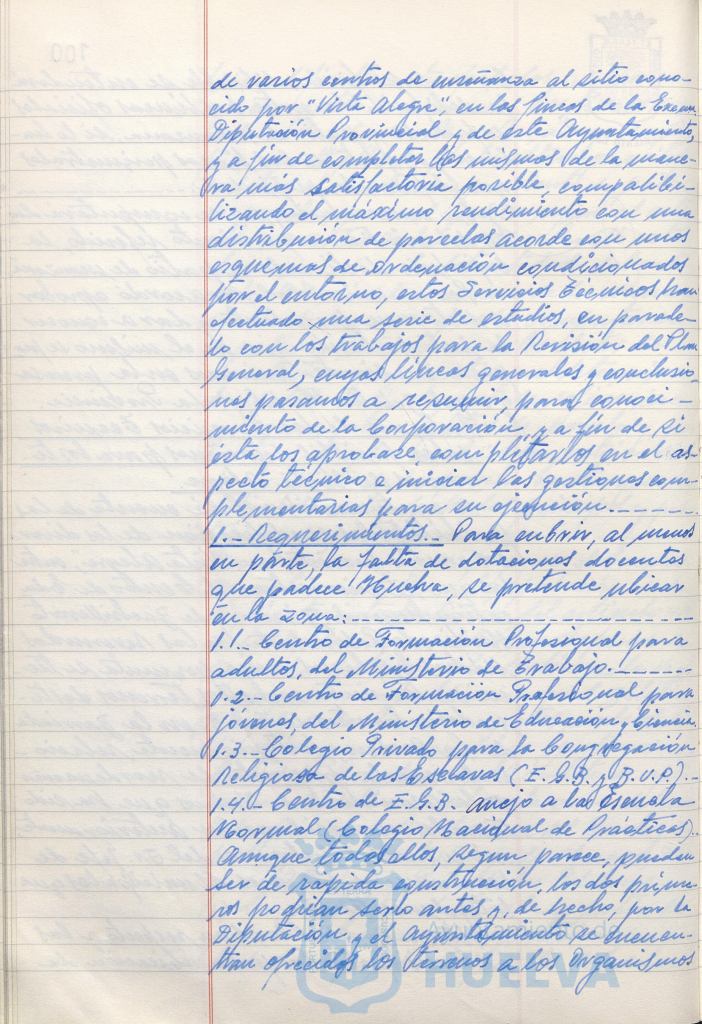 de varios centros de enseñanza al sitio cono-
cido por "Vista Alegre", en las fincas de la Excma.
Diputación Provincial y de este Ayuntamiento,
y a fin de completar los mismos de la mane-
ra más satisfactoria posible, compatibi-
lizando el máximo rendimiento con una
distribución de parcelas acorde con unos
esquemas de ordenación condicionados
por el entorno, estos Servicios Técnicos han
efectuado una serie de estudios, en parale-
lo con los trabajos para la Revisión del Plan
General, cuyas líneas generales y conclusio-
nes pasamos a resumir, para conoci-
miento de la Corporación y a fin de si
ésta los aprobase, completarlos en el as-
pecto técnico e iniciar las gestiones com-
plementarias para su ejecución.------
1.- Requerimientos.- Para cubrir, al menos
en parte, la falta de dotaciones docentes
que padece Huelva, se pretende ubicar
en la zona:------------------
1.1.- Centro de Formación Profesional para
adultos, del Ministerio de Trabajo.------
1.2.- Centro de Formación Profesional para
jóvenes, del Ministerio de Educación y Ciencia.
1.3.- Colegio Privado para la Congregación
Religiosa de las Esclavas (E.G.B. y B.U.P.).-
1.4.- Centro de E.G.B. anejo a la Escuela
Normal (Colegio Nacional de Prácticas).
Aunque todos ellos, según parece, puedan
ser de rápida construcción, los dos prime-
ros podrían serlo antes y, de hecho, por la
Diputación y el Ayuntamiento se encuen-
tran ofrecidos los terrenos a los Organismos
100
HUELVA